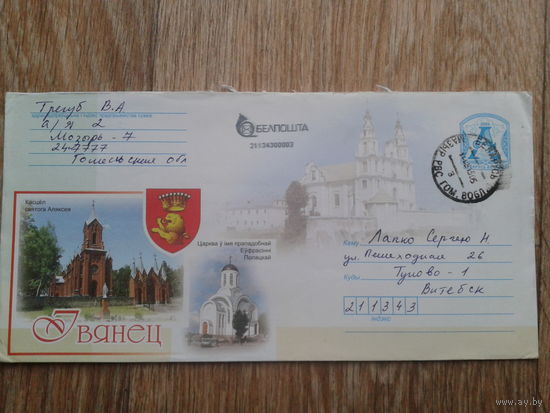 Трегуб В.А
а/я 2
Мозырь - 7
247777
Гомельская обл
БЕЛПОШТА
21134300003
Касцёл
святога Аляксея
Царква ў імя прападобнай
Еўфрасінні
Полацкай
Івянец
БЕЛАРУСЬ
МАЗЫР РВС ГОМ. ВОБЛ.
Каму Лапко Сергею Н
ул. Пешеходная 26
Куды Тулово - 1
Витебск
211343
Індэкс
www.ay.by